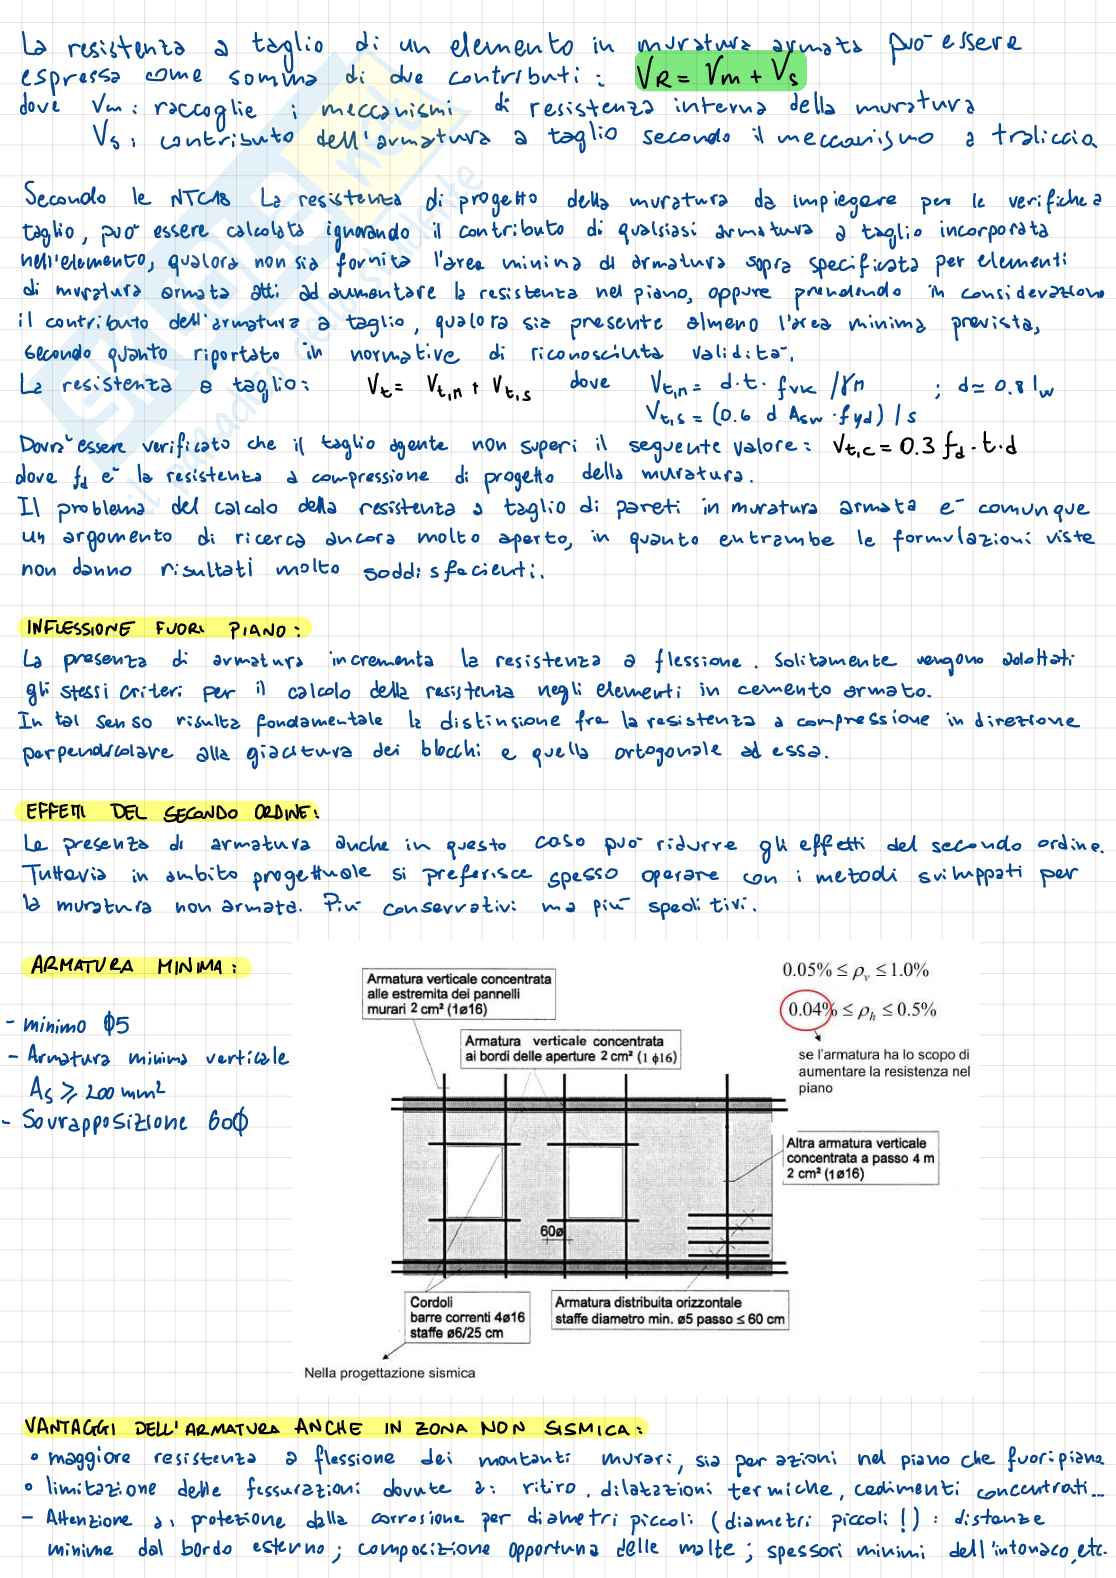 La resistenza a taglio di un elemento in muratura armata può essere
espressa come somma di due contributi: VR = Vm + Vs
dove Vm: raccoglie i meccanismi di resistenza interna della muratura
Vs: contributo dell'armatura a taglio secondo il meccanismo a traliccio
Secondo le NTC18 La resistenza di progetto della muratura da impiegare per le verifiche a
taglio, può essere calcolata ignorando il contributo di qualsiasi armatura a taglio incorporata
nell'elemento, qualora non sia fornita l'area minima di armatura sopra specificata per elementi
di muratura armata atti ad aumentare la resistenza nel piano, oppure prendendo in considerazione
il contributo dell'armatura a taglio, qualora sia presente almeno l'area minima prevista,
secondo quanto riportato in normative di riconosciuta validità.
La resistenza a taglio: Vt = Vt,n + Vt,s dove Vt,n = d·t·fvk /γn ; d ≃ 0.8 lw
Vt,s = (0.6 d Asw · fyd) / s
Dovrà essere verificato che il taglio agente non superi il seguente valore: Vt,c = 0.3 fd · t · d
dove fd è la resistenza a compressione di progetto della muratura.
Il problema del calcolo della resistenza a taglio di pareti in muratura armata è comunque
un argomento di ricerca ancora molto aperto, in quanto entrambe le formulazioni viste
non danno risultati molto soddisfacienti.
INFLESSIONE FUORI PIANO:
La presenza di armatura incrementa la resistenza a flessione. Solitamente vengono adottati
gli stessi criteri per il calcolo della resistenza negli elementi in cemento armato.
In tal senso risulta fondamentale la distinsione fra la resistenza a compressione in direzione
perpendicolare alla giacitura dei blocchi e quella ortogonale ad essa.
EFFETTI DEL SECONDO ORDINE:
La presenza di armatura anche in questo caso può ridurre gli effetti del secondo ordine.
Tuttavia in ambito progettuale si preferisce spesso operare con i metodi sviluppati per
la muratura non armata. Più conservativi ma più speditivi.
ARMATURA MINIMA:
- minimo Φ5
- Armatura minima verticale
As ⩾ 200 mm²
- Sovrapposizione 60ϕ
Armatura verticale concentrata
alle estremita dei pannelli
murari 2 cm² (1ø16)
Armatura verticale concentrata
ai bordi delle aperture 2 cm² (1 ϕ16)
0.05% ≤ ρv ≤ 1.0%
0.04% ≤ ρh ≤ 0.5%
se l'armatura ha lo scopo di
aumentare la resistenza nel
piano
Altra armatura verticale
concentrata a passo 4 m
2 cm² (1ø16)
60ø
Cordoli
barre correnti 4ø16
staffe ø6/25 cm
Armatura distribuita orizzontale
staffe diametro min. ø5 passo ≤ 60 cm
Nella progettazione sismica
VANTAGGI DELL'ARMATURA ANCHE IN ZONA NON SISMICA:
• maggiore resistenza a flessione dei montanti murari, sia per azioni nel piano che fuori piano
• limitazione delle fessurazioni dovute a: ritiro, dilatazioni termiche, cedimenti concentrati...
- Attenzione a: protezione dalla corrosione per diametri piccoli (diametri piccoli!): distanze
minime dal bordo esterno; composizione opportuna delle malte; spessori minimi dell'intonaco, etc.